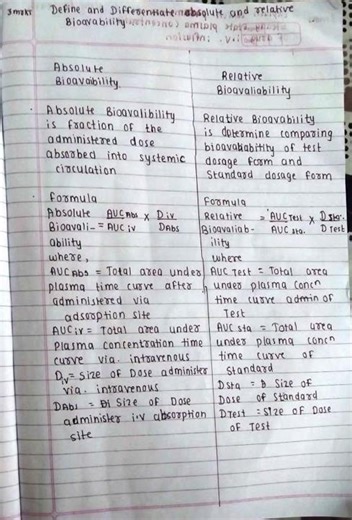 3 mark Define and Differentiate absolute and relative
Bioavability
Absolute
Bioavaibility.
Relative
Bioavaliability
Absolute Bioavalibility
is fraction of the
administered dose
absorbed into systemic
circulation
Relative Bioavability
is determine comparing
bioavabability of test
dosage form and
Standard dosage form
Formula
Absolute AUC Abs x D iv.
Bioavali- = AUC iv DAbs
ability
where,
AUC Abs = Total area under
plasma time curve after
administered via
adsorption site
AUC iv = Total area under
Plasma concentration time
curve via. intravenous
Div = Size of Dose administer
via. intravenous
DAbs = Size of Dose
administer i.v absorption
site
Formula
Relative = AUC Test x D Star.
Bioavaliab- AUC sta. D Test
ility
where
AUC Test = Total area
under plasma concn
time curve admin of
Test
AUC sta = Total area
under plasma concn
time curve of
Standard
Dsta = Size of
Dose of Standard
DTest = Size of Dose
of Test